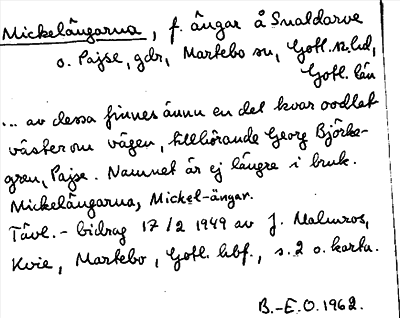 Mickelängarna, f. ängar å Snaldarve
o. Pajse, gdr, Martebo sn, Gotl. n. hd,
Gotl. län
... av dessa finnes ännu en del kvar oodlat
väster om vägen, tillhörande Georg Björke-
gren, Pajse. Namnet är ej längre i bruk.
Mickelängarna, Mickel-ängar.
Tävl.- bidrag 17/2 1949 av J. Malmros,
Kvie, Martebo, Gotl. hbf., s. 2 o. karta.
B.-E.O. 1962.